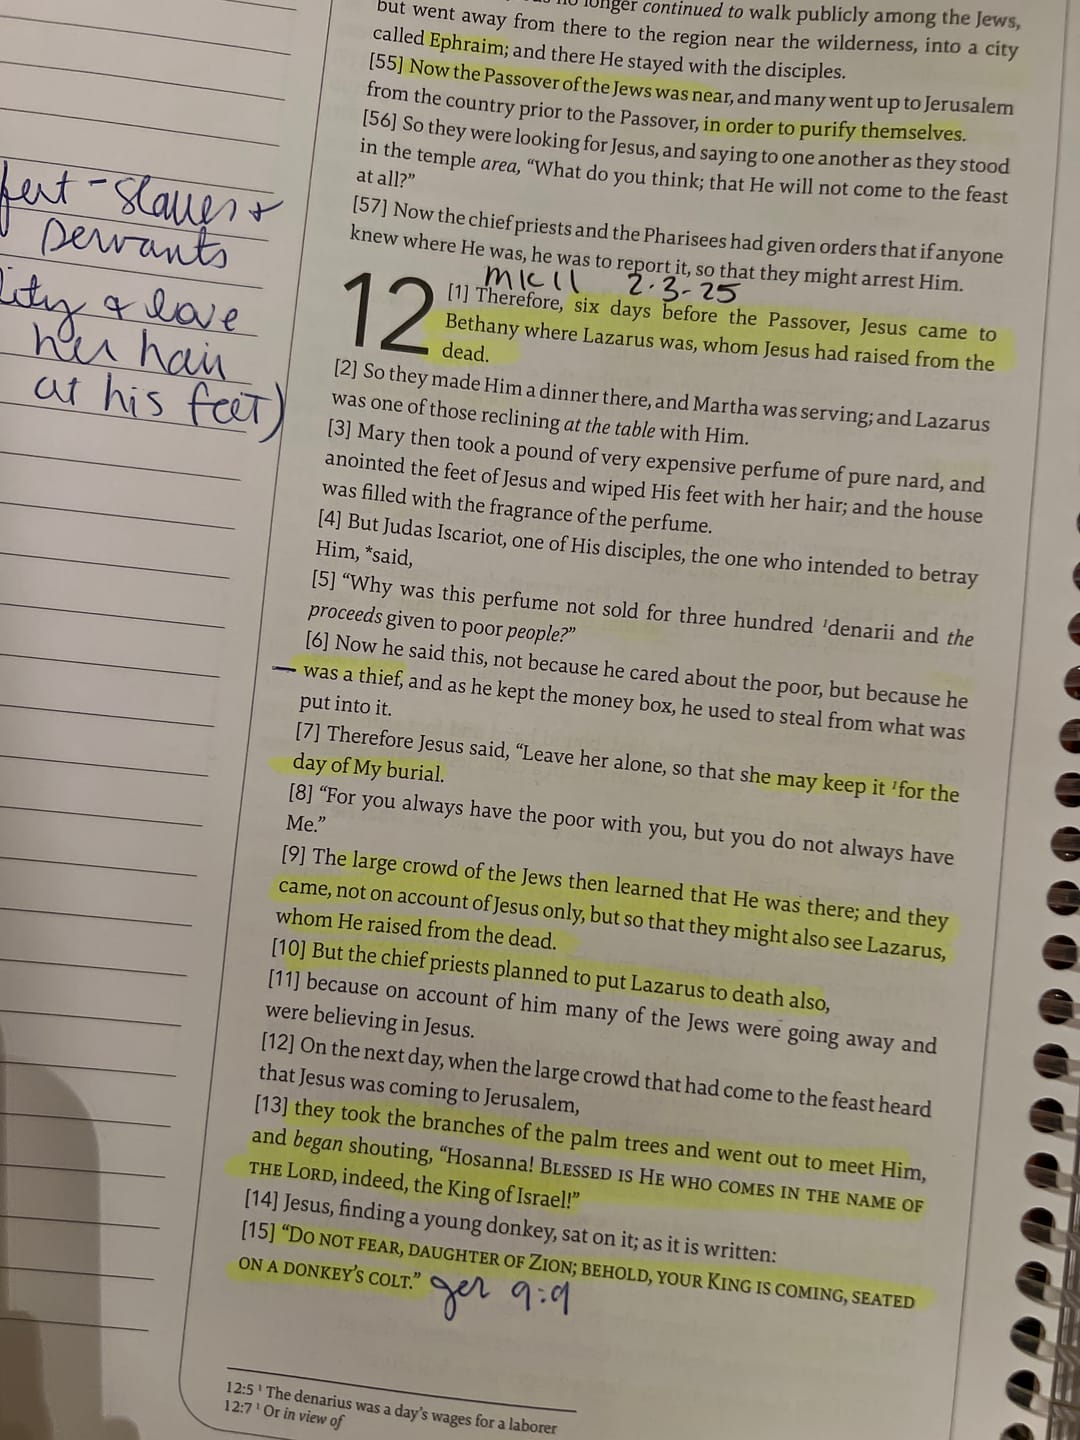 longer continued to walk publicly among the Jews,
but went away from there to the region near the wilderness, into a city
called Ephraim; and there He stayed with the disciples.
[55] Now the Passover of the Jews was near, and many went up to Jerusalem
from the country prior to the Passover, in order to purify themselves.
[56] So they were looking for Jesus, and saying to one another as they stood
in the temple area, “What do you think; that He will not come to the feast
at all?”
[57] Now the chief priests and the Pharisees had given orders that if anyone
knew where He was, he was to report it, so that they might arrest Him.
MK 11 2-3-25
12
[1] Therefore, six days before the Passover, Jesus came to
Bethany where Lazarus was, whom Jesus had raised from the
dead.
[2] So they made Him a dinner there, and Martha was serving; and Lazarus
was one of those reclining at the table with Him.
[3] Mary then took a pound of very expensive perfume of pure nard, and
anointed the feet of Jesus and wiped His feet with her hair; and the house
was filled with the fragrance of the perfume.
[4] But Judas Iscariot, one of His disciples, the one who intended to betray
Him, *said,
[5] “Why was this perfume not sold for three hundred ¹denarii and the
proceeds given to poor people?”
[6] Now he said this, not because he cared about the poor, but because he
was a thief, and as he kept the money box, he used to steal from what was
put into it.
[7] Therefore Jesus said, “Leave her alone, so that she may keep it ¹for the
day of My burial.
[8] “For you always have the poor with you, but you do not always have
Me.”
[9] The large crowd of the Jews then learned that He was there; and they
came, not on account of Jesus only, but so that they might also see Lazarus,
whom He raised from the dead.
[10] But the chief priests planned to put Lazarus to death also,
[11] because on account of him many of the Jews were going away and
were believing in Jesus.
[12] On the next day, when the large crowd that had come to the feast heard
that Jesus was coming to Jerusalem,
[13] they took the branches of the palm trees and went out to meet Him,
and began shouting, “Hosanna! BLESSED IS HE WHO COMES IN THE NAME OF
THE LORD, indeed, the King of Israel!”
[14] Jesus, finding a young donkey, sat on it; as it is written:
[15] “DO NOT FEAR, DAUGHTER OF ZION; BEHOLD, YOUR KING IS COMING, SEATED
ON A DONKEY’S COLT.” 9:9
12:5 ¹ The denarius was a day’s wages for a laborer
12:7 ¹ Or in view of
- Slaves +
servants
& love
her hair
at his feet)